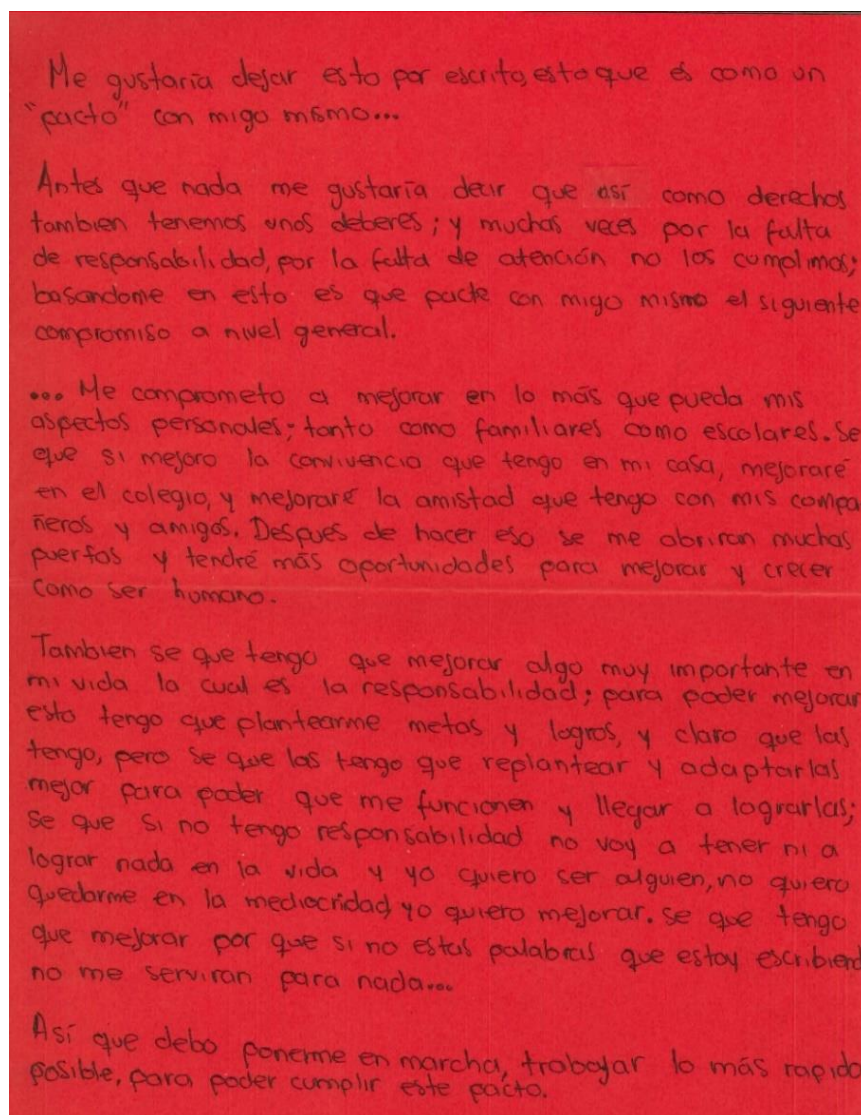 Me gustaría dejar esto por escrito, esto que es como un
"pacto" con migo mismo...
Antes que nada me gustaría decir que así como derechos
tambien tenemos unos deberes; y muchas veces por la falta
de responsabilidad, por la falta de atención no los cumplimos;
basandome en esto es que pacte con migo mismo el siguiente
compromiso a nivel general.
... Me comprometo a mejorar en lo más que pueda mis
aspectos personales; tanto como familiares como escolares. Se
que si mejoro la convivencia que tengo en mi casa, mejoraré
en el colegio, y mejoraré la amistad que tengo con mis compa
ñeros y amigos. Despues de hacer eso se me abriran muchas
puertas y tendré más oportunidades para mejorar y crecer
como ser humano.
Tambien se que tengo que mejorar algo muy importante en
mi vida la cual es la responsabilidad; para poder mejorar
esto tengo que plantearme metas y logros, y claro que las
tengo, pero se que las tengo que replantear y adaptarlas
mejor para poder que me funcionen y llegar a lograrlas;
se que si no tengo responsabilidad no voy a tener ni a
lograr nada en la vida y yo quiero ser alguien, no quiero
quedarme en la mediocridad, yo quiero mejorar. se que tengo
que mejorar por que si no estas palabras que estoy escribiend
no me serviran para nada...
Así que debo ponerme en marcha, trabajar lo más rapido
posible, para poder cumplir este pacto.